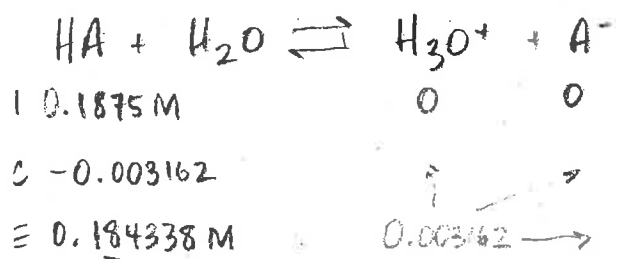 HA + H₂O ⇌ H₃O⁺ + A⁻
I 0.1875 M 0 0
C -0.003162 ↑ ↗
E 0.184338 M 0.003162 →